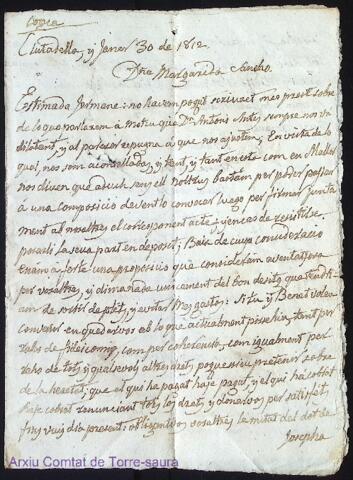 Copia
Ciutadella, y Janer 30 de 1812.
Dña Margarida Sancho.
Estimada Jermana: no havem pogut escriuret mes prest sobre
de lo que parlarem á motiu que Dn Antoni sempre nos va
dilatant, y al pareser repugna á que nos ajustem; En vista de lo
qual, nos som aconsellada, y tant en esta com en Mallor
nos diuen que á seu hi noltros bastam per poder passar
á una composició devent lo convocar luego per firmar junta
ment ab noaltres el corresponent acte; y en cas de resistir
posarli la seva part en deposit; Baix de cuya consideració
á ferte una proposició que consideram aventatjosa
per vosaltres, y dimanada unicament del bon desitg que tenim
de sortir de plet, y evitar mes gastos: si tu y Benet voleu
convenir en quedarvos ab lo que actualment possehiu, tant per
raho de fideicomis, com per coherencia, com igualment per
raho de tots, y qualsevols altres drets poguessiu pretenir sobre
de la heretat; que el qui ha pagat haje pagat, y el qui ha cobrat
haje cobrat renunciant tots los drets, y donarvos per satisfets
fins vuy dia present; obligantvos vosaltres la mitat del dot de
Josepha
Arxiu Comtat de Torre-saura